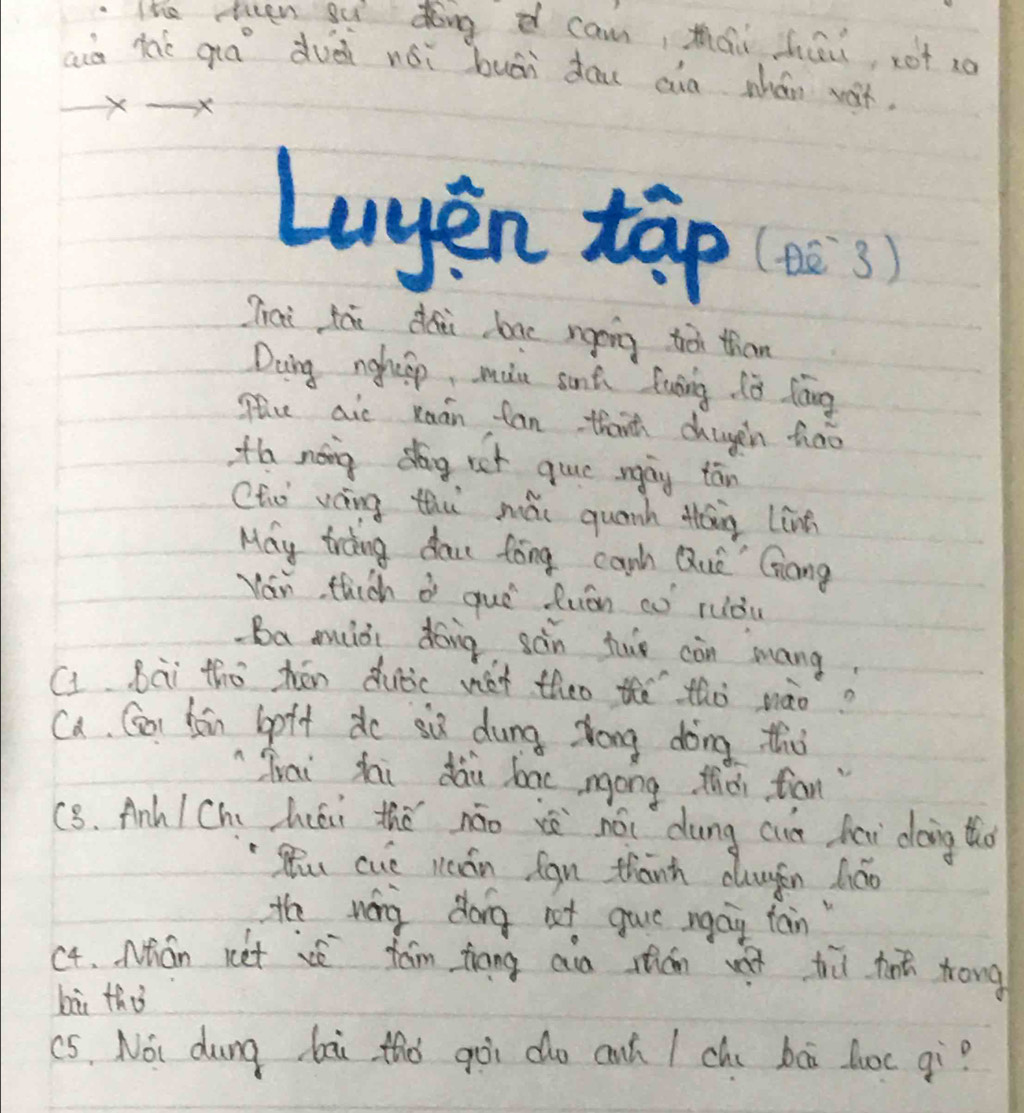 thể hiện sự đồng cảm, thấu hiểu, xót xa
của tác giả dưới nỗi buồn đau của nhân vật.
Luyện tập (Đề 3)
Trai tài đầu bạc ngóng trời than
Dựng nghiệp, mưu sinh luống lỡ làng
Thu cúc xuân lan thành chuyện hão
Hạ nồng đông rét quục ngày tàn
Chó vàng thú mãi quanh Hồng Lĩnh
Mây trắng đau lòng cạnh Quế Giang
Vẫn thích ở quê luôn có rượu
Ba mươi đồng sẵn túi còn mang.
C1. Bài thơ trên được viết theo thể thơ nào?
C2. Gọi tên bptt đc sử dụng trong dòng thơ
"Trai tài đầu bạc ngóng trời than"
C3. Anh/Chị hiểu thế nào về nội dung của hai dòng thơ
"Thu cúc xuân lan thành chuyện hão
Hạ nồng đông rét quục ngày tàn"
C4. Nhận xét về tâm trạng của nhân vật trữ tình trong
bài thơ
C5. Nội dung bài thơ gợi cho anh / chị bài học gì?